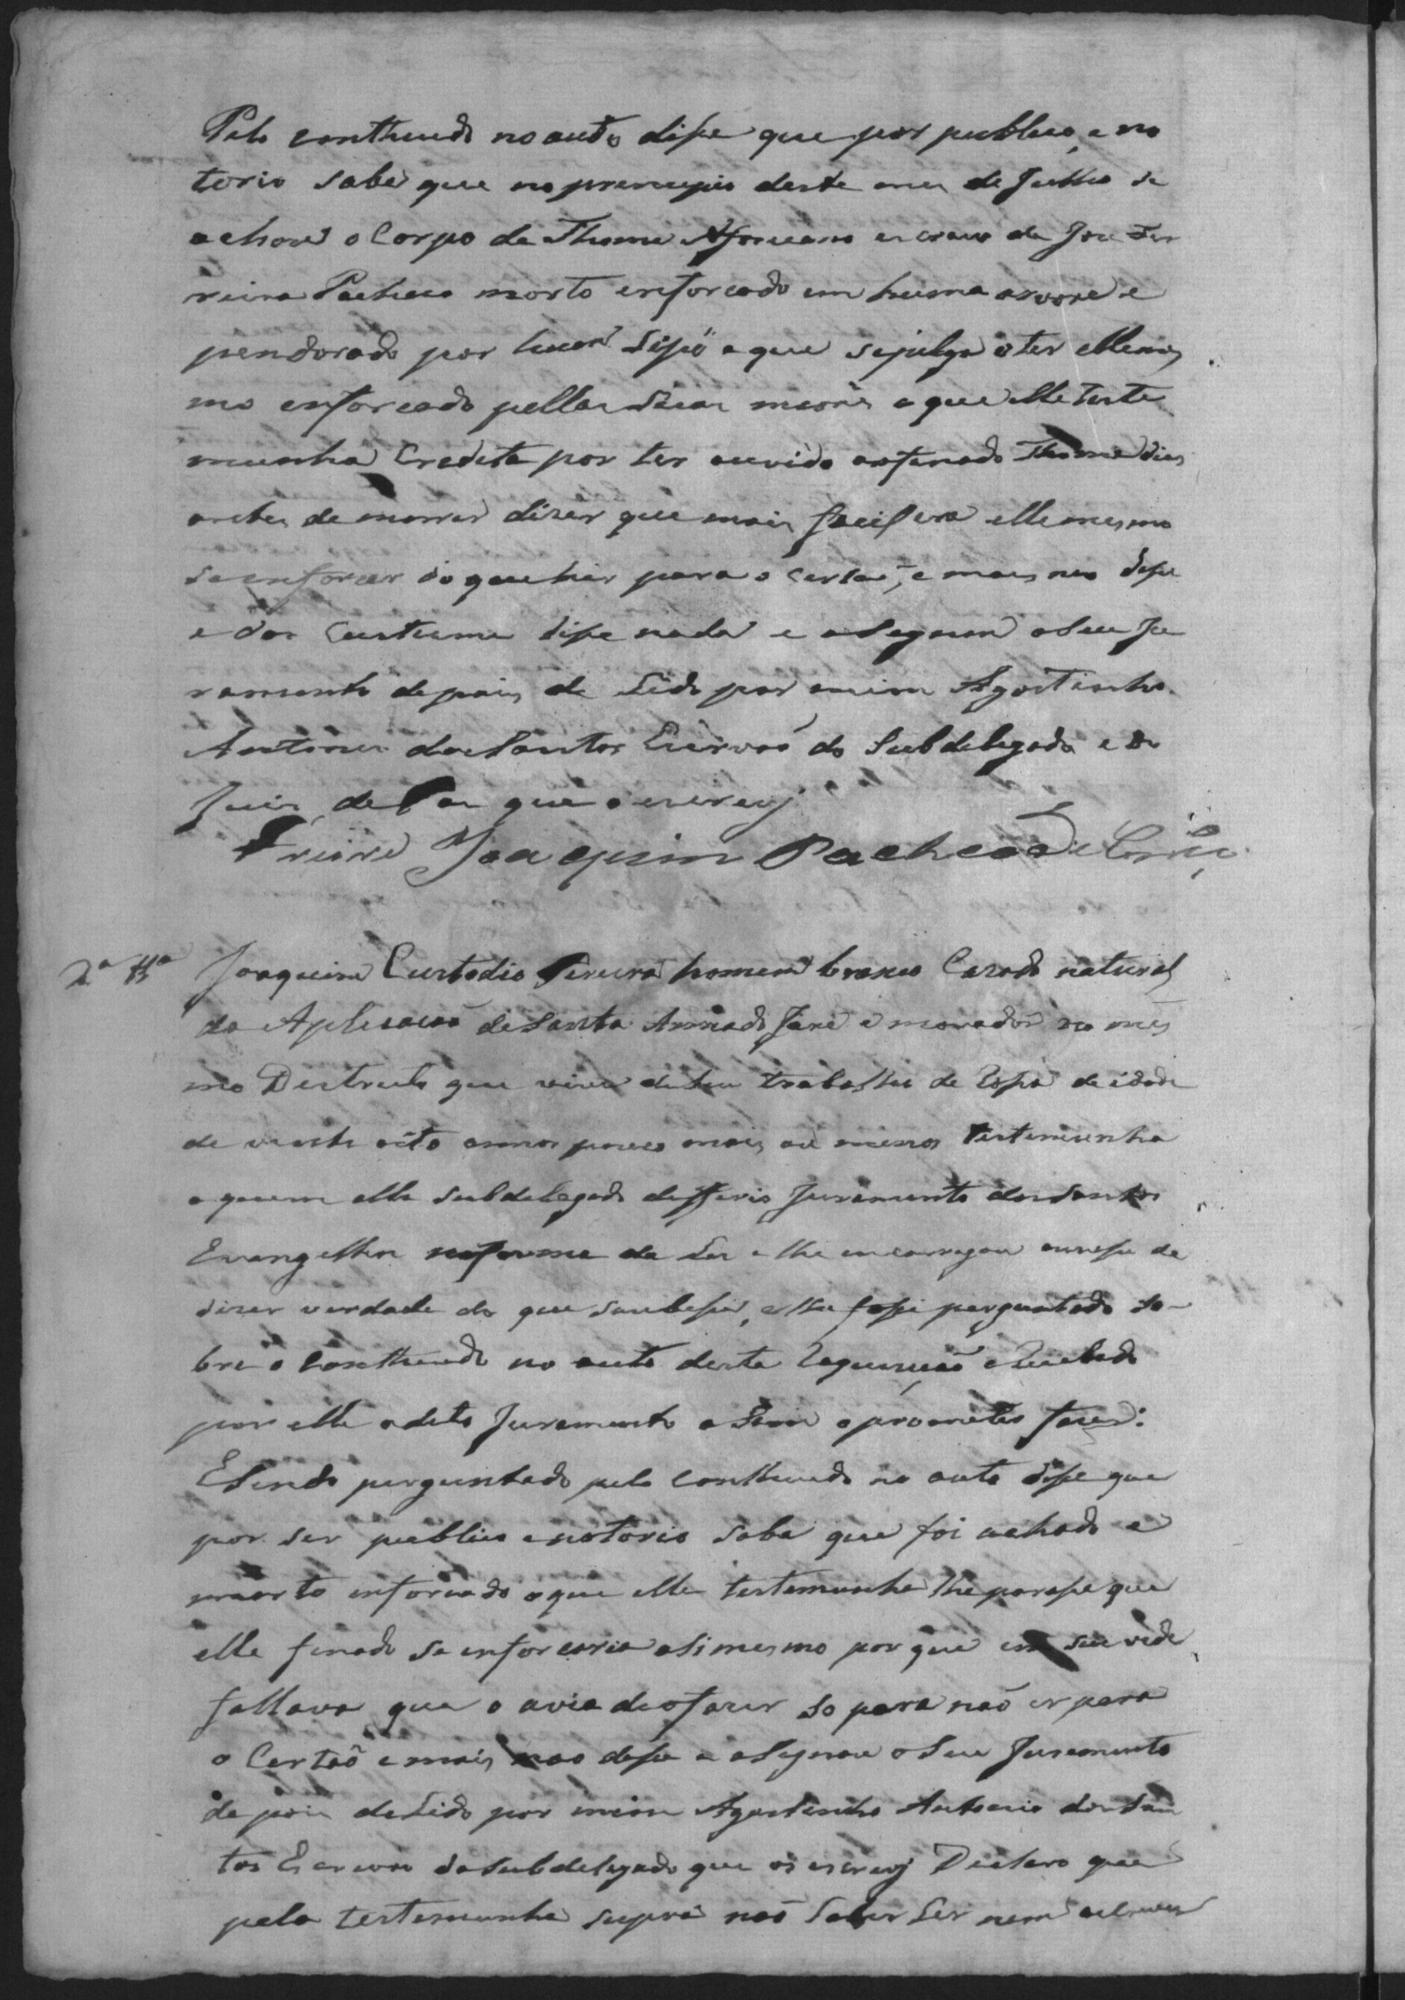 Pelo contheudo no auto dise que por publico, e no
torio sabe que no principio deste mes de Julho se
achou o Corpo de Thome Afrecano escravo de Joze Fer
reira Pacheco morto enforcado em huma arvore e
pendorado por hum Sipó o que sejulga o ter ellemes
mo enforcado pellas suas maons o que elle teste
munha Credita por ter ouvido aofinado Thome dias
antes de morrer dizer que mais facil era elle mesmo
se enforcar do que hir para o certaõ, e mais naõ dise
e dos Custume dise nada e asegnou o Seu Ju
ramento depois de Lido por mim Agostinho
Antonio dos Santos Escrivaõ do Subdelegado e do
Juis de Pas que o escrevj
Freire Joaquim Pacheco
2ª tª Joaquim Custodio Pereira homem branco Cazado natural
da Aplicacaõ de Santa Anna do e morador no mes
mo Destrito que vive de seu trabalho de Rosa de idade
de vinte oito annos pouco mais ou menos testemunha
a quem elle subdelegado defferio Juramento dos Santos
Evangelhos naforma da Lei e lhe encarregou de
dizer verdade do que soubese, e lhe fose perguntado so-
bre o Contheudo no auto desta e Recebido
por elle o dito Juramento asim o prometeo fazer:
ESendo perguntado pelo Contheudo no auto dise que
por ser publico e notorio sabe que foi achado e
morto enforcado o que elle testemunha lhe parese que
elle finado se enforcaria asimesmo por que em sua vida
fallava que o avia de ofazer so para naõ ir para
o Certaõ e mais naõ dise e asegnou o Seu Juramento
depois de Lido por mim Agostinho Antonio dos San
tos Escrivaõ do Subdelegado que os escrevj Declaro que
pela testemunha supra naõ Saber Ler nem escrever